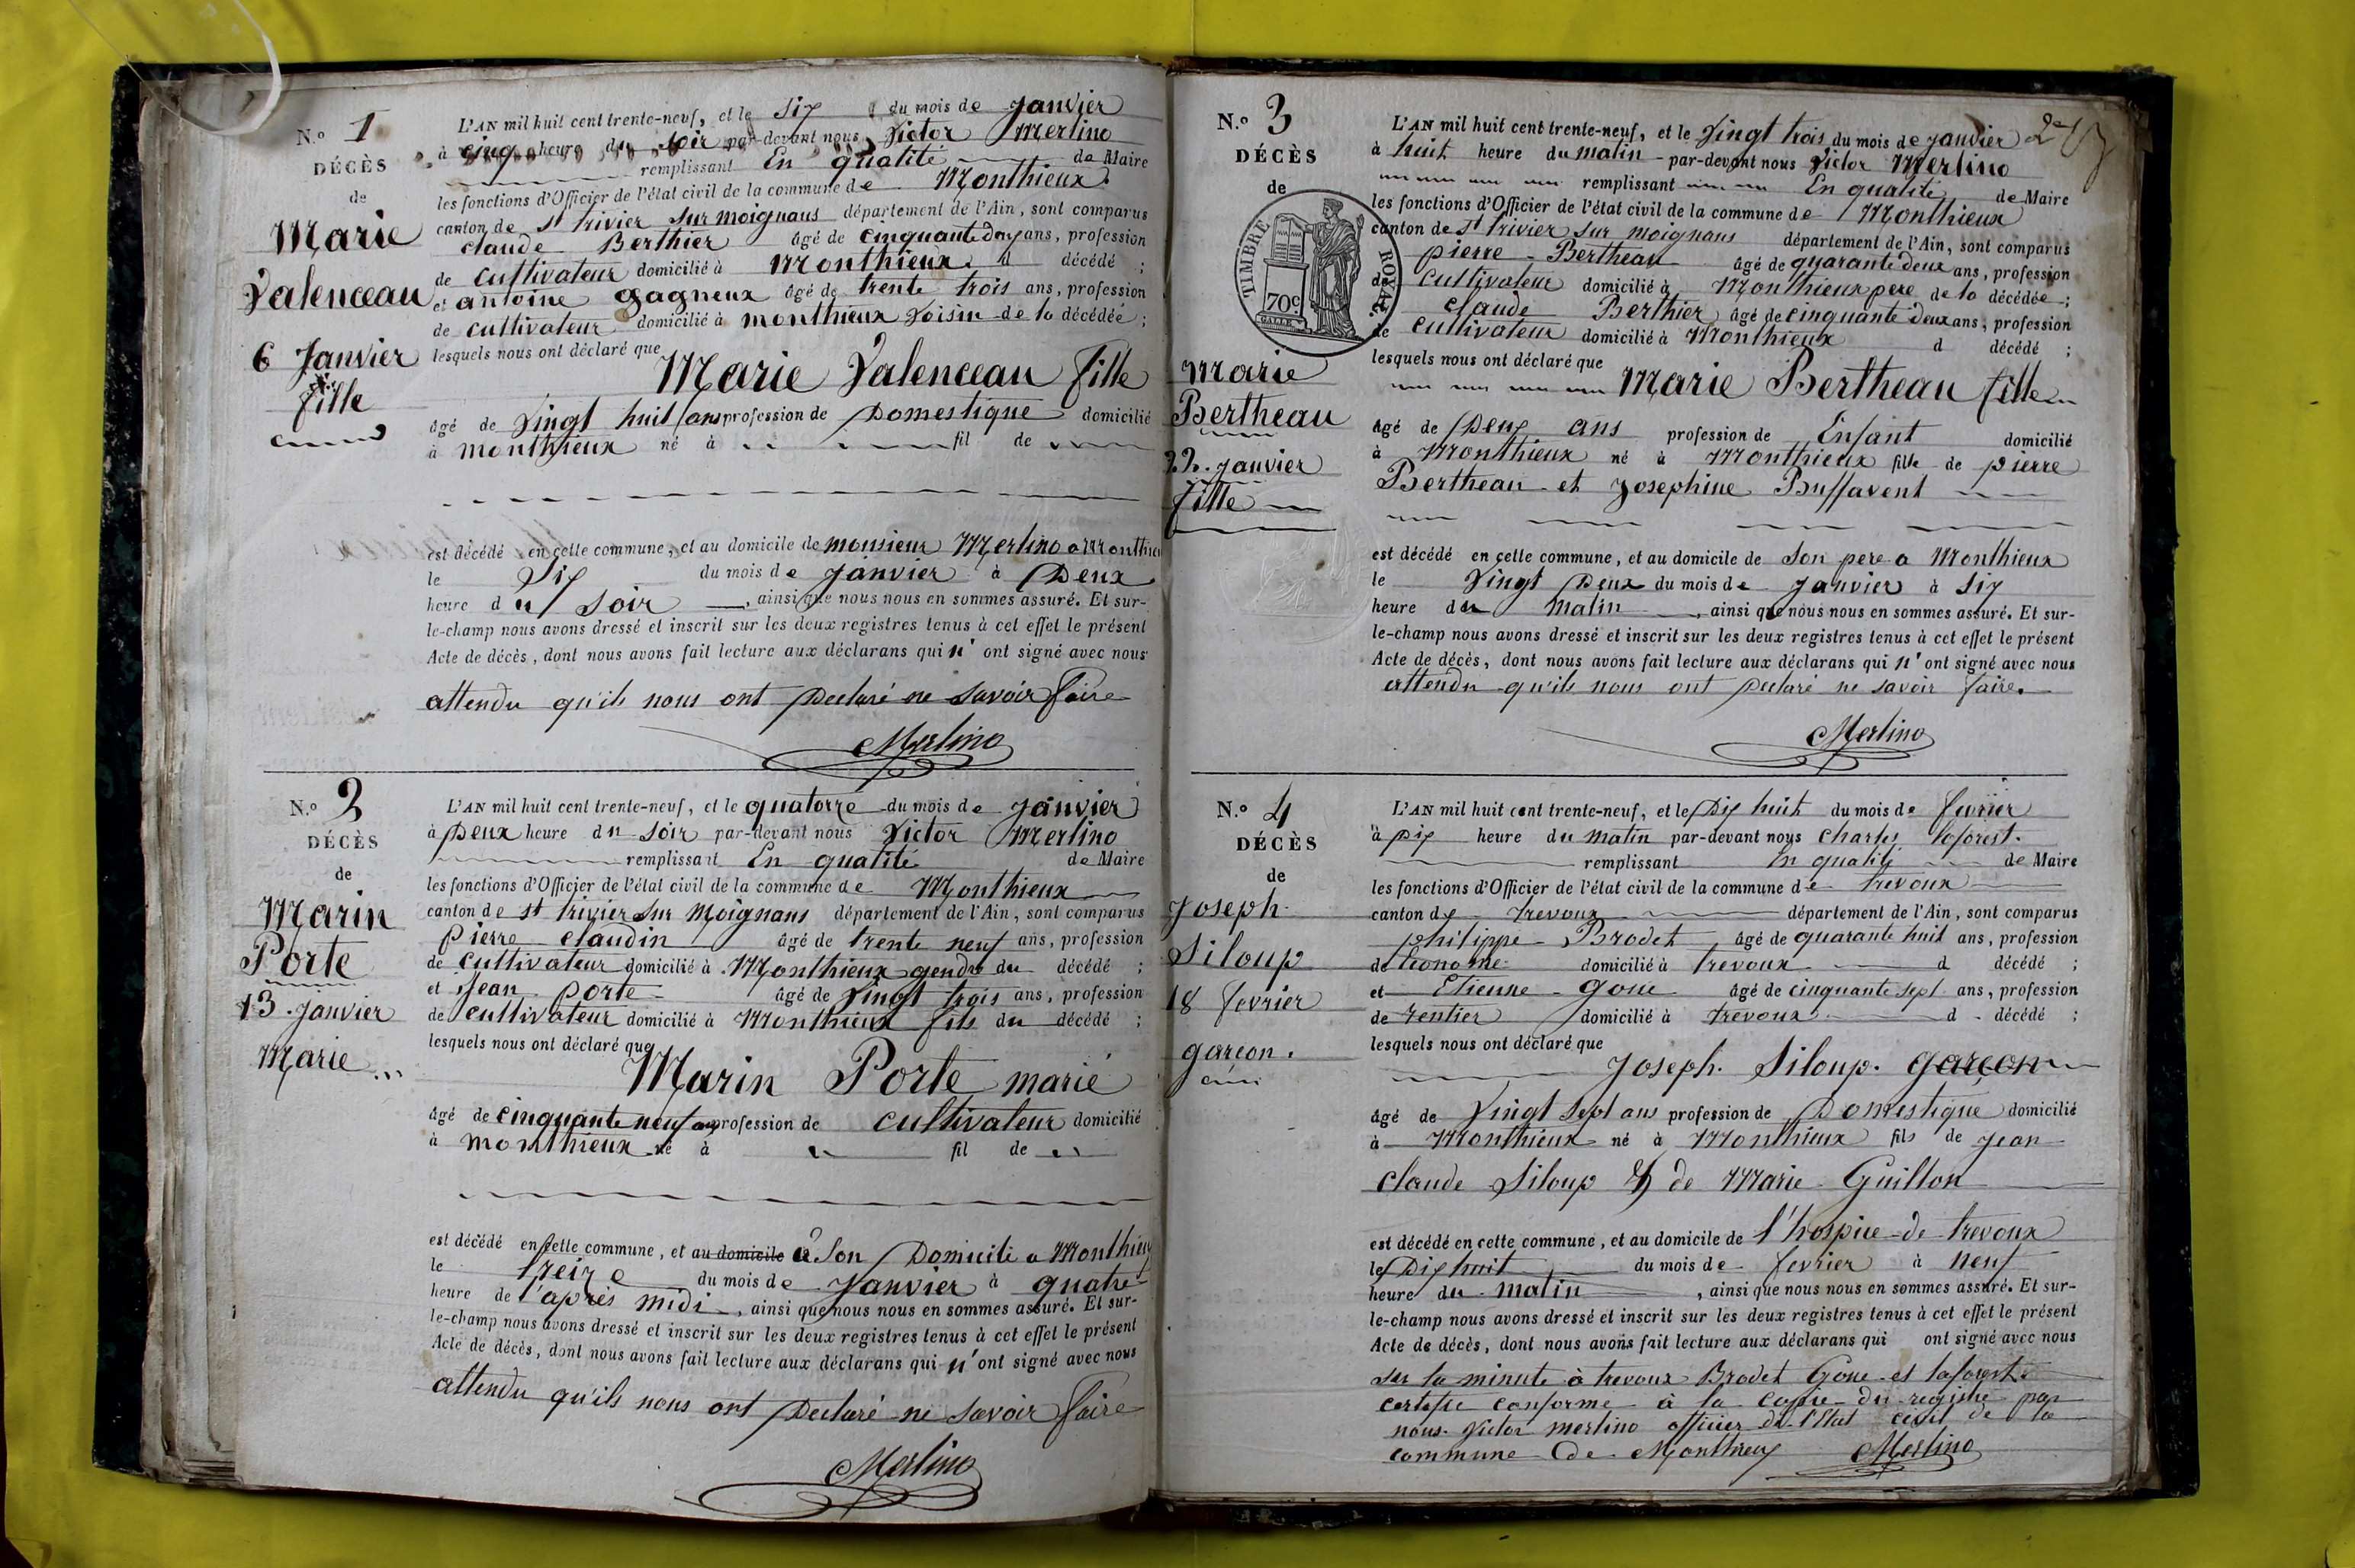 N.o 1
DÉCÈS
de
Marie
Valenceau
6 Janvier
fille
L'AN mil huit cent trente-neuf, et le Six du mois de Janvier
à cinq heure du soir par-devant nous Victor Merlino
remplissant En qualité de Maire
les fonctions d'Officier de l'état civil de la commune de Monthieux
canton de st trivier sur moignans département de l'Ain, sont comparus
claude Berthier âgé de cinquante deux ans, profession
de cultivateur domicilié à Monthieux d décédé ;
et antoine gagneux âgé de trente trois ans, profession
de cultivateur domicilié à monthieux Voisin de la décédée ;
lesquels nous ont déclaré que
Marie Valenceau fille
âgé de Vingt huit ans profession de Domestique domicilié
à monthieux né à fil de
est décédé en cette commune, et au domicile de monsieur Merlino a Monthieu
le Six du mois de Janvier à Deux
heure du soir, ainsi que nous nous en sommes assuré. Et sur-
le-champ nous avons dressé et inscrit sur les deux registres tenus à cet effet le présent
Acte de décès, dont nous avons fait lecture aux déclarans qui n' ont signé avec nous
attendu qu'ils nous ont Declaré ne savoir faire
Merlino
N.o 2
DÉCÈS
de
Marin
Porte
13 Janvier
Marie
L'AN mil huit cent trente-neuf, et le quatorze du mois de Janvier
à Deux heure du soir par-devant nous Victor Merlino
remplissant En qualité de Maire
les fonctions d'Officier de l'état civil de la commune de Monthieux
canton de st trivier sur Moignans département de l'Ain, sont comparus
pierre claudin âgé de trente neuf ans, profession
de cultivateur domicilié à Monthieux gendre du décédé ;
et Jean porte âgé de Vingt trois ans, profession
de cultivateur domicilié à Monthieux fils du décédé ;
lesquels nous ont déclaré que
Marin Porte marié
âgé de cinquante neuf ans profession de cultivateur domicilié
à monthieux né à fil de
est décédé en cette commune, et au domicile à Son Domicile a Monthieux
le treize du mois de Janvier à quatre
heure de l'après midi, ainsi que nous nous en sommes assuré. Et sur-
le-champ nous avons dressé et inscrit sur les deux registres tenus à cet effet le présent
Acte de décès, dont nous avons fait lecture aux déclarans qui n' ont signé avec nous
attendu qu'ils nous ont Declaré ne savoir faire
Merlino
N.o 3
DÉCÈS
de
TIMBRE ROYAL
70c
Marie
Bertheau
22 Janvier
fille
L'AN mil huit cent trente-neuf, et le Vingt trois du mois de Janvier
à huit heure du matin par-devant nous Victor Merlino
remplissant En qualité de Maire
les fonctions d'Officier de l'état civil de la commune de Monthieux
canton de St trivier sur moignans département de l'Ain, sont comparus
pierre Bertheau âgé de quarante deux ans, profession
de cultivateur domicilié à Monthieux pere de la décédée ;
et claude Berthier âgé de cinquante deux ans, profession
de cultivateur domicilié à Monthieux d décédé ;
lesquels nous ont déclaré que
Marie Bertheau fille
âgé de Deux ans profession de Enfant domicilié
à Monthieux né à Monthieux fille de pierre
Bertheau et Josephine Buffavent
est décédé en cette commune, et au domicile de Son pere a Monthieux
le Vingt Deux du mois de Janvier à Six
heure du matin, ainsi que nous nous en sommes assuré. Et sur-
le-champ nous avons dressé et inscrit sur les deux registres tenus à cet effet le présent
Acte de décès, dont nous avons fait lecture aux déclarans qui n' ont signé avec nous
attendu qu'ils nous ont Declaré ne savoir faire.
Merlino
N.o 4
DÉCÈS
de
Joseph
Siloup
18 fevrier
garcon.
L'AN mil huit cent trente-neuf, et le Dix huit du mois de fevrier
à Dix heure du matin par-devant nous Charles laforest.
remplissant En qualité de Maire
les fonctions d'Officier de l'état civil de la commune de trevoux
canton de trevoux département de l'Ain, sont comparus
philippe Brodet âgé de quarante huit ans, profession
de Econome domicilié à trevoux d décédé ;
et Etienne Goue âgé de cinquante sept ans, profession
de rentier domicilié à trevoux d décédé ;
lesquels nous ont déclaré que
Joseph. Siloup. garçon
âgé de Vingt sept ans profession de Domestique domicilié
à Monthieux né à Monthieux fils de Jean
claude Siloup & de Marie Guillon
est décédé en cette commune, et au domicile de l'hospice de trevoux
le Dix huit du mois de fevrier à neuf
heure du matin, ainsi que nous nous en sommes assuré. Et sur-
le-champ nous avons dressé et inscrit sur les deux registres tenus à cet effet le présent
Acte de décès, dont nous avons fait lecture aux déclarans qui ont signé avec nous
sur la minute à trevoux Brodet Goue et laforest.
certifié conforme à la copie du registre par
nous Victor merlino officier de l'Etat civil de la
commune de Monthieux Merlino